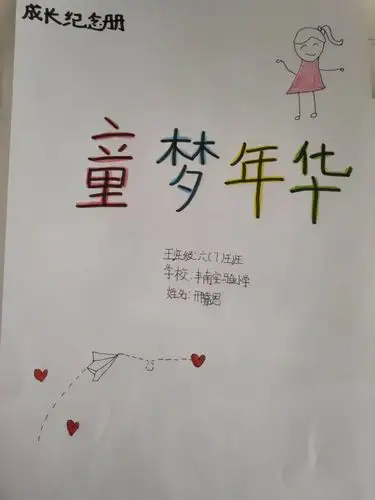 成长纪念册
童梦年华
班级:六(7)班
学校:丰南实验小学
姓名:邢慧恩